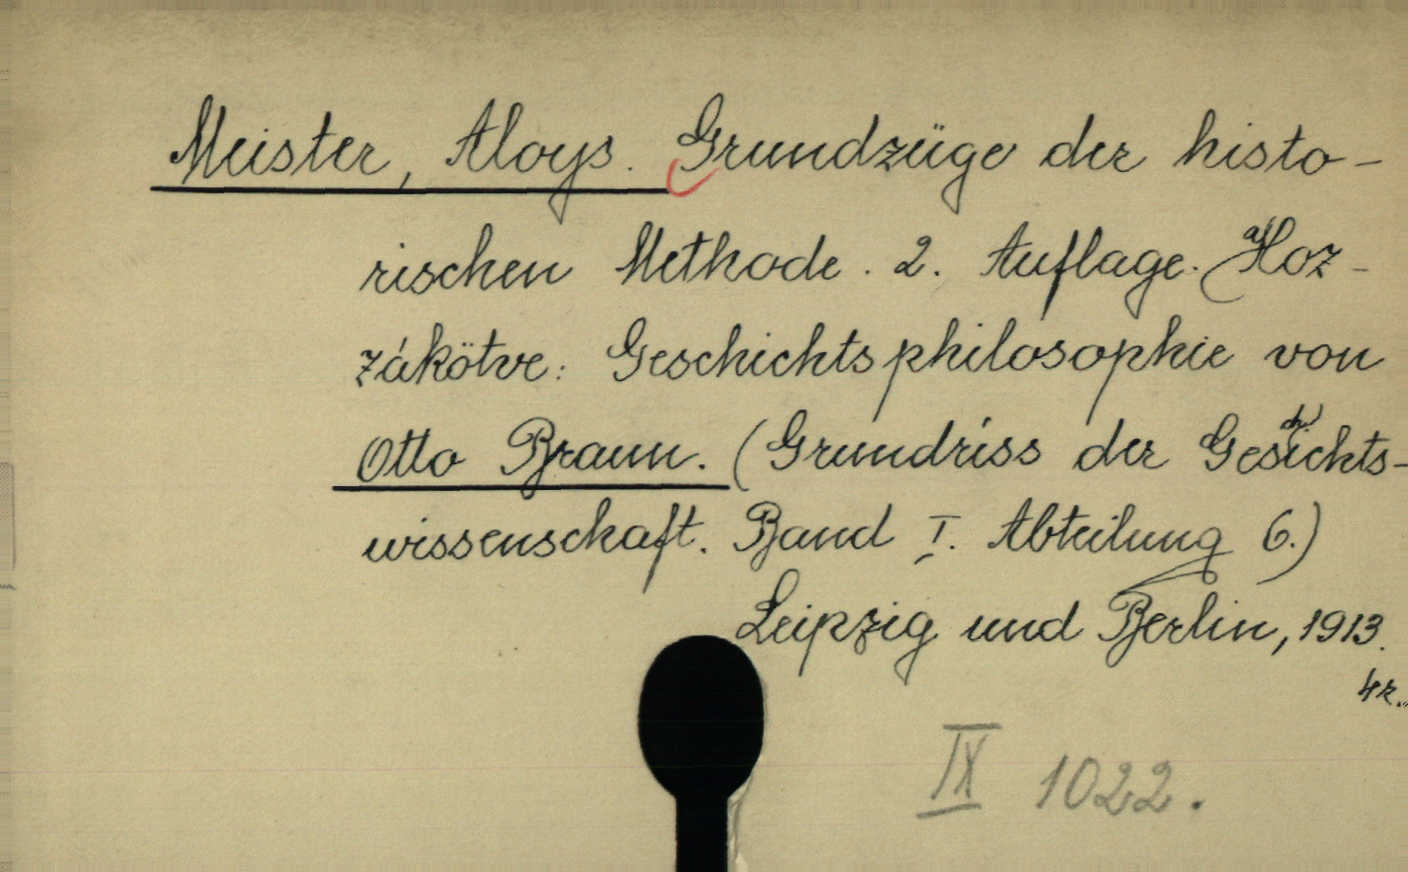 Meister, Aloys. Grundzüge der histo-
rischen Methode. 2. Auflage. Hoz-
zákötve: Geschichtsphilosophie von
Otto Braun. (Grundriss der Geschichts-
wissenschaft. Band I. Abteilung 6.)
Leipzig und Berlin, 1913.
4r.
IX 1022.